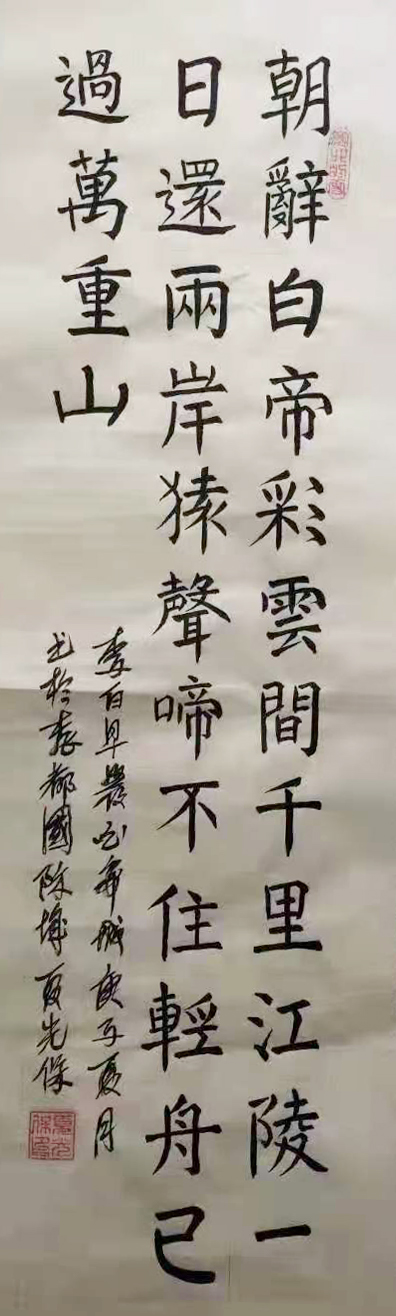 朝辭白帝彩雲間千里江陵一
日還兩岸猿聲啼不住輕舟已
過萬重山
李白早發白帝城庚子夏月
書於春都國際城夏先保